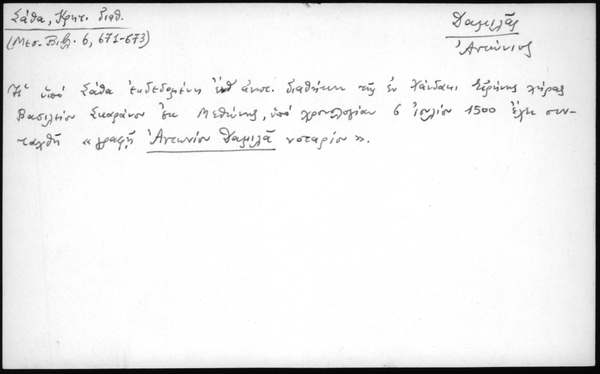 Σάθα, Κρητ. διαθ.
(Μεσ. Βιβλ. 6, 671-673)
Δαμιλᾶς
Ἀντώνιος
Ἡ ὑπὸ Σάθα ἐκδεδομένη ὑπ' ἀρ. διαθήκη τῆς ἐν Χάνδακι Εἰρήνης χήρας
Βασιλείου Σκαράνου ἐκ Μεθώνης, ὑπὸ χρονολογίαν 6 Ἰουλίου 1500 ἔχει συν-
ταχθῆ «γραφῇ Ἀντωνίου Δαμιλᾶ νοταρίου».